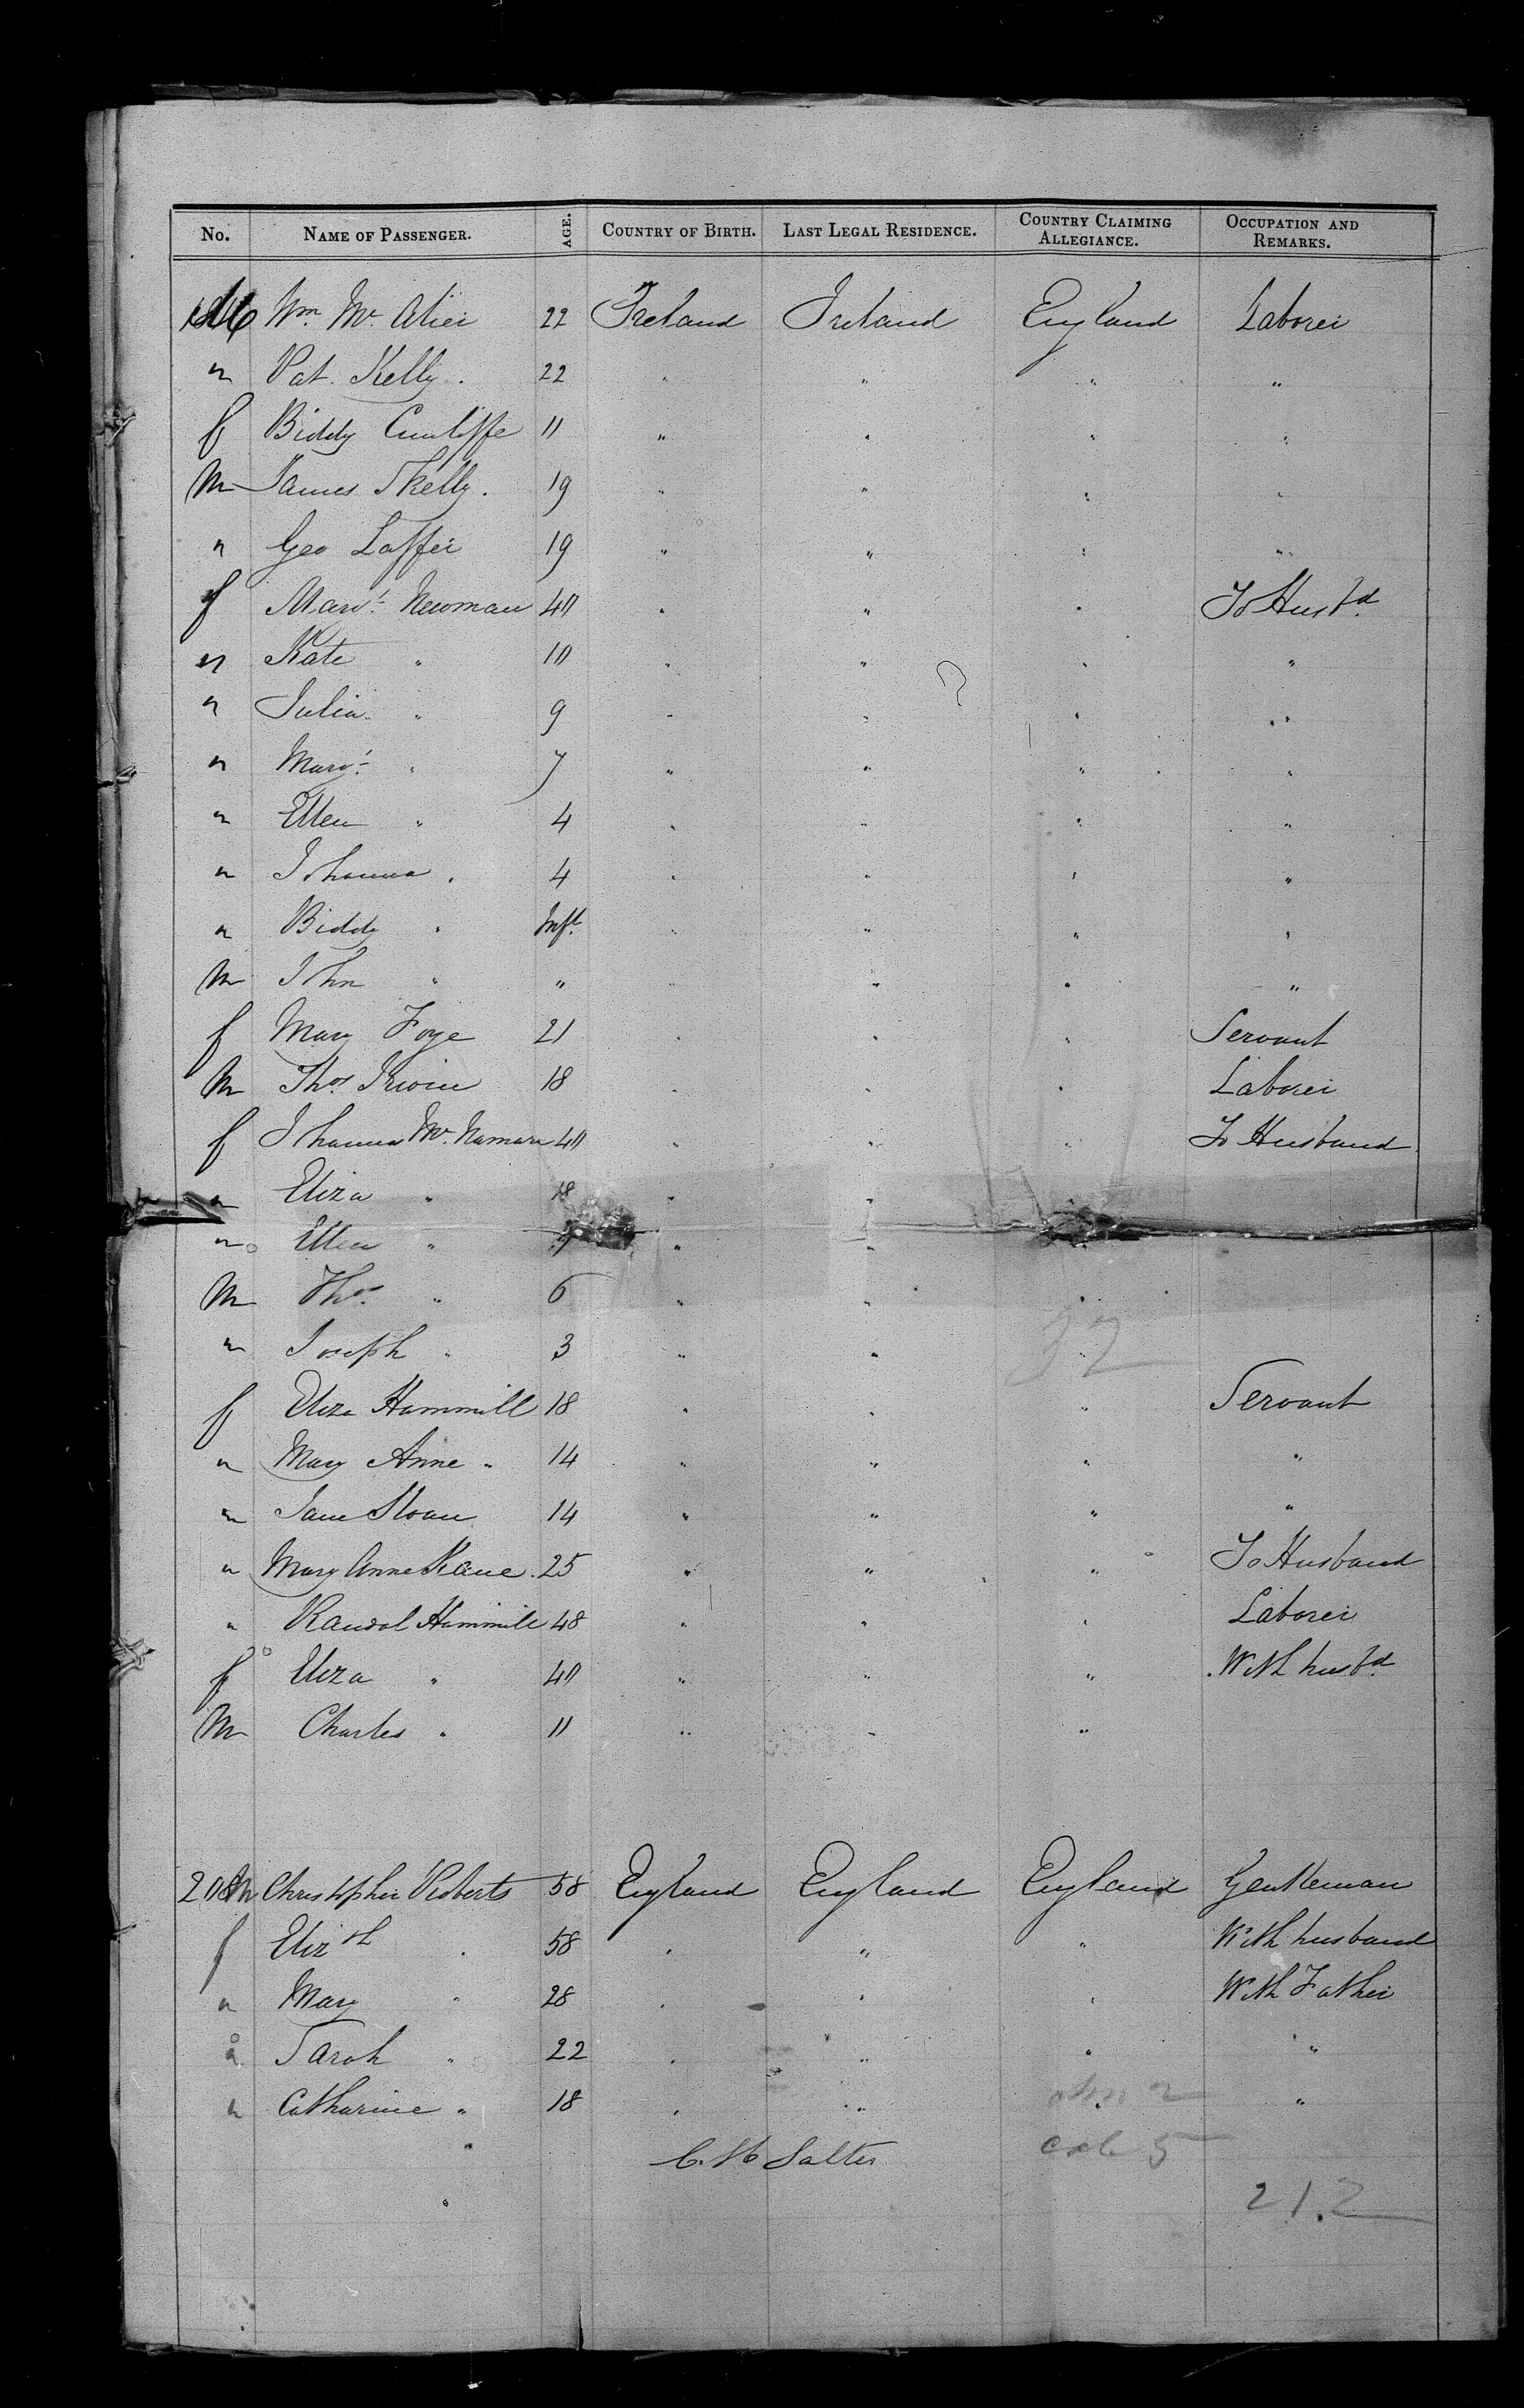 No. NAME OF PASSENGER. AGE. COUNTRY OF BIRTH. LAST LEGAL RESIDENCE. COUNTRY CLAIMING ALLEGIANCE. OCCUPATION AND REMARKS.
Wm. Mc. 22 Ireland Ireland England Laborer
" Pat. Kelly. 22 " " " "
f Biddy Cunliffe 11 " " " "
M James Skelly. 19 " " " "
" Geo Laffer 19 " " " "
f Margt. Newman 40 " " " To Husbd.
" Kate " 10 " " " "
" Julia " 9 " " " "
" Margt. " 7 " " " "
" Ellen " 4 " " " "
" Johanna " 4 " " " "
" Biddy " Inft. " " " "
M John " " " " " "
f Mary Foye 21 " " " Servant
M Thos. Irwin 18 " " " Laborer
f Johanna Mc. Namara 40 " " " To Husband
" Eliza " 18 " " "
" Ellen " " "
M Thos. " 6 " " "
" Joseph " 3 " " " 32
f Eliza Hammill 18 " " " Servant
" Mary Anne " 14 " " " "
" Jane Sloan 14 " " " "
" Mary Anne Kane. 25 " " " To Husband
" Randal Hammill 48 " " " Laborer
f Eliza " 40 " " " With husbd.
M Charles " 11 " " "
208 M Christopher Roberts 58 England England England Gentleman
f Elizth " 58 " " " With husband
" Mary " 28 " " " With Father
" Sarah " 22 " " " "
" Catharine " 18 " " " "
" C. H Salter 5
" 212